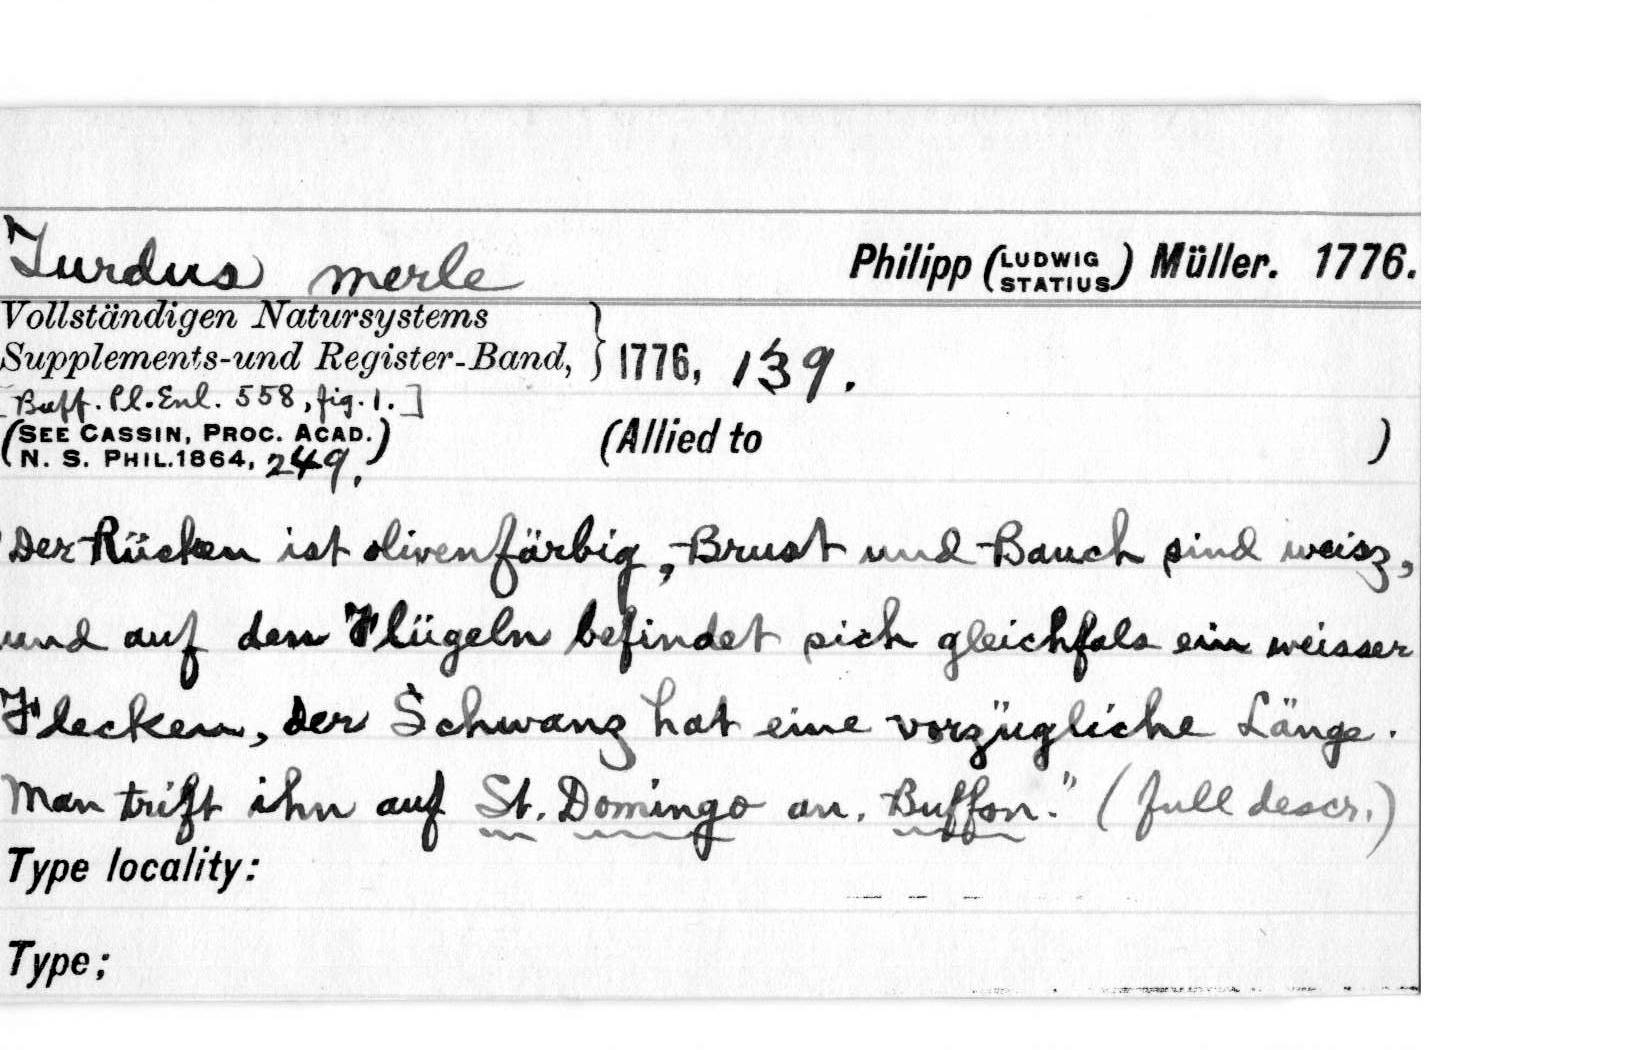 Turdus merle Philipp (LUDWIG STATIUS) Müller. 1776.
Vollständigen Natursystems
Supplements-und Register-Band, } 1776, 139.
[Buff. Pl. Enl. 558, fig. 1.]
(SEE CASSIN, PROC. ACAD.
N. S. PHIL. 1864, 249.) (Allied to )
"Der Rücken ist olivenfärbig, Brust und Bauch sind weisz,
und auf den Flügeln befindet sich gleichfals ein weisser
Flecken, der Schwanz hat eine vorzügliche Länge.
Man trift ihn auf St. Domingo an. Buffon." (full descr.)
Type locality:
Type;